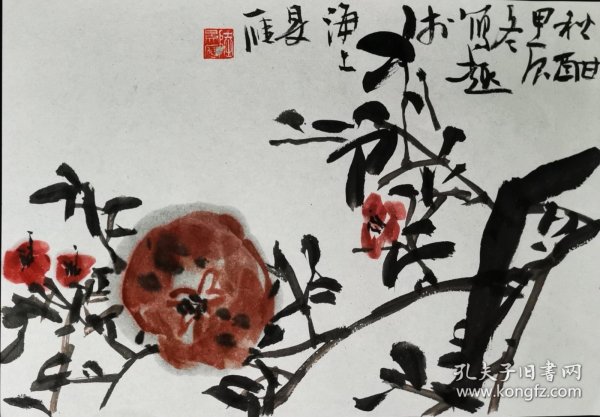 秋酣
甲辰
冬
写趣
于
海上
孔夫子旧书网
www.kongfz.com